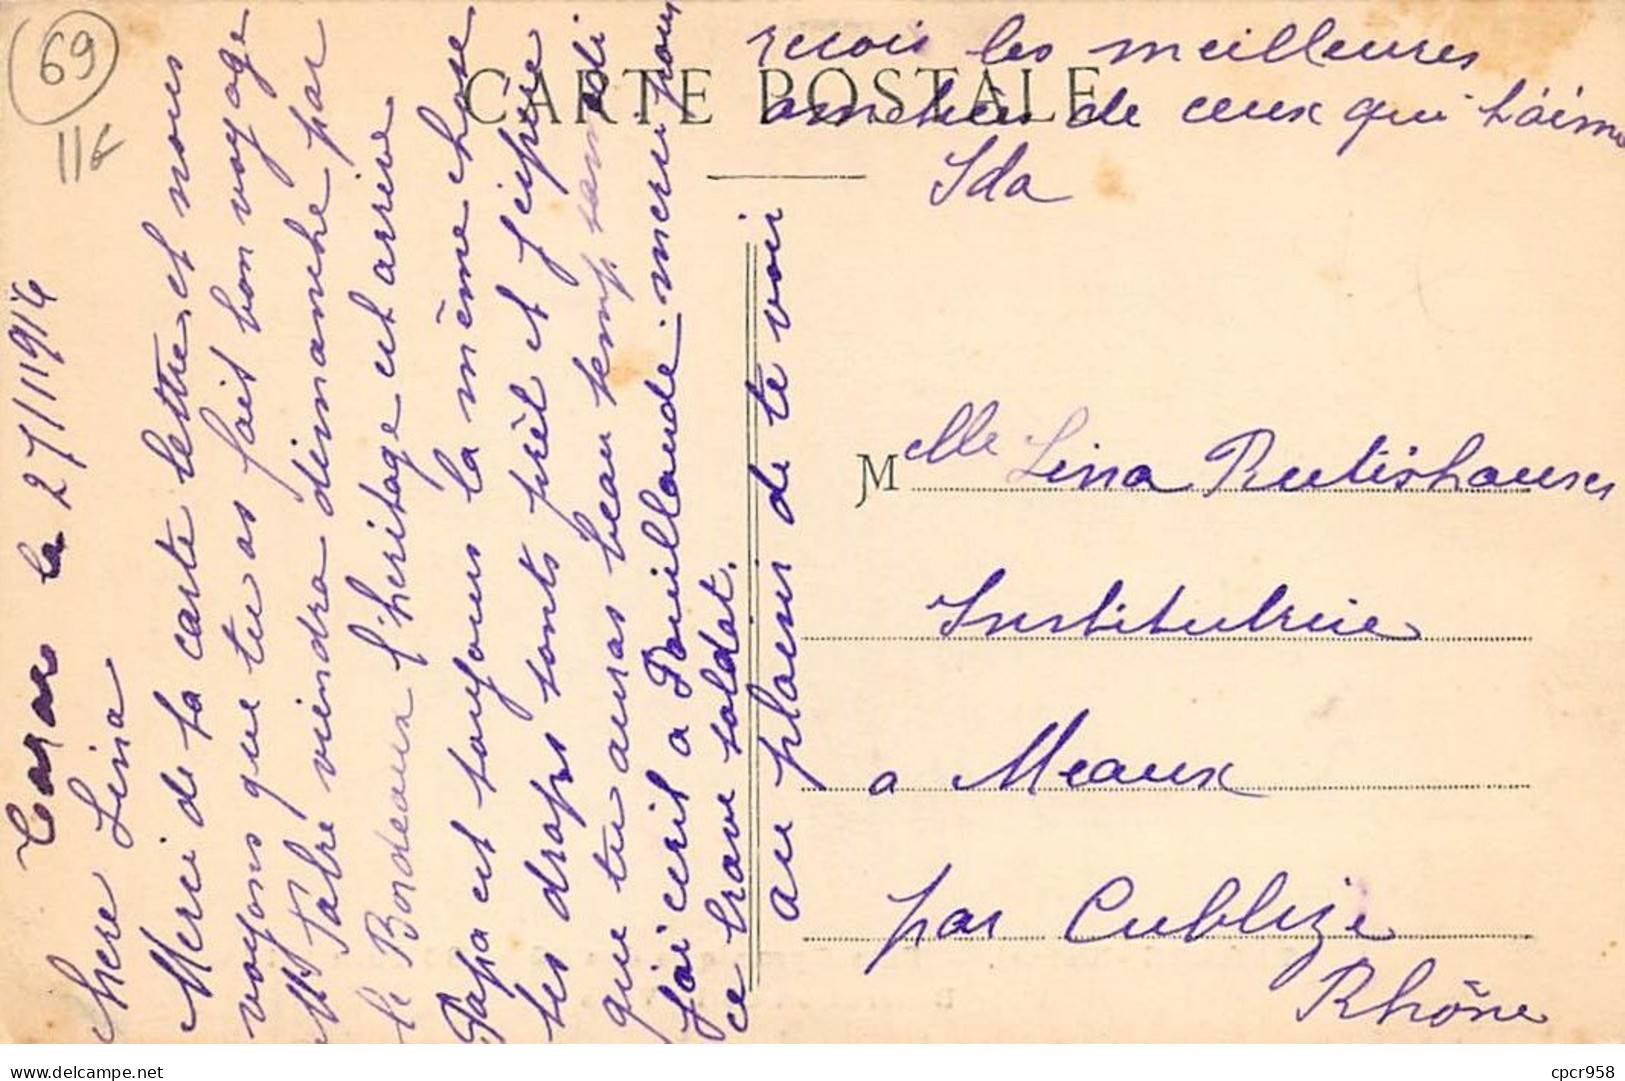 69
11€
CARTE POSTALE
le 27/1/1916
Chere Lina
Merci de ta carte lettre, et nous
voyons que tu as fait bon voyage
Mr Fabre viendra dimanche par
le Bordeaux l'heritage est arrive
Papa est toujours la même chose
tes draps sonts prèt et j'éspère
que tu auras beau temp samedi
j'ai ecrit a Pouillaude. merci pour
ce brave soldat.
au plaisir de te voir
recois les meilleures
amitiés de ceux qui t'aime
Ida
Melle Lina Rutishauser
Institutrice
a Meaux
par Cublize
Rhône
cpcr958